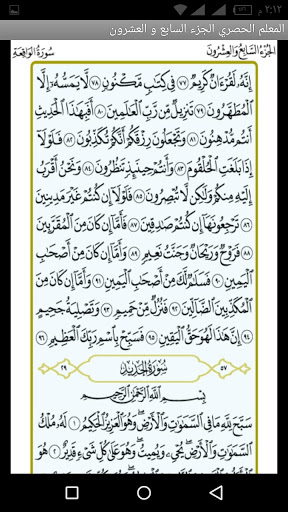 ٢:١٢ م
المعلم الحصري الجزء السابع و العشرون
الجزء السابع والعشرون
سورة الواقعة
إِنَّهُ لَقُرْءَانٌ كَرِيمٌ ٧٧ فِي كِتَٰبٍ مَّكْنُونٍ ٧٨ لَّا يَمَسُّهُ إِلَّا
ٱلْمُطَهَّرُونَ ٧٩ تَنزِيلٌ مِّن رَّبِّ ٱلْعَٰلَمِينَ ٨٠ أَفَبِهَٰذَا ٱلْحَدِيثِ
أَنتُم مُّدْهِنُونَ ٨١ وَتَجْعَلُونَ رِزْقَكُمْ أَنَّكُمْ تُكَذِّبُونَ ٨٢ فَلَوْلَا
إِذَا بَلَغَتِ ٱلْحُلْقُومَ ٨٣ وَأَنتُمْ حِينَئِذٍ تَنظُرُونَ ٨٤ وَنَحْنُ أَقْرَبُ
إِلَيْهِ مِنكُمْ وَلَٰكِن لَّا تُبْصِرُونَ ٨٥ فَلَوْلَا إِن كُنتُمْ غَيْرَ مَدِينِينَ
٨٦ تَرْجِعُونَهَا إِن كُنتُمْ صَٰدِقِينَ ٨٧ فَأَمَّا إِن كَانَ مِنَ ٱلْمُقَرَّبِينَ
٨٨ فَرَوْحٌ وَرَيْحَانٌ وَجَنَّتُ نَعِيمٍ ٨٩ وَأَمَّا إِن كَانَ مِنْ أَصْحَٰبِ
ٱلْيَمِينِ ٩٠ فَسَلَٰمٌ لَّكَ مِنْ أَصْحَٰبِ ٱلْيَمِينِ ٩١ وَأَمَّا إِن كَانَ مِنَ
ٱلْمُكَذِّبِينَ ٱلضَّالِّينَ ٩٢ فَنُزُلٌ مِّنْ حَمِيمٍ ٩٣ وَتَصْلِيَةُ جَحِيمٍ
٩٤ إِنَّ هَٰذَا لَهُوَ حَقُّ ٱلْيَقِينِ ٩٥ فَسَبِّحْ بِٱسْمِ رَبِّكَ ٱلْعَظِيمِ ٩٦
٥٧ سورة الحديد ٢٩
بِسْمِ ٱللَّهِ ٱلرَّحْمَٰنِ ٱلرَّحِيمِ
سَبَّحَ لِلَّهِ مَا فِي ٱلسَّمَٰوَٰتِ وَٱلْأَرْضِ وَهُوَ ٱلْعَزِيزُ ٱلْحَكِيمُ ١ لَهُ مُلْكُ
ٱلسَّمَٰوَٰتِ وَٱلْأَرْضِ يُحْيِي وَيُمِيتُ وَهُوَ عَلَىٰ كُلِّ شَيْءٍ قَدِيرٌ ٢